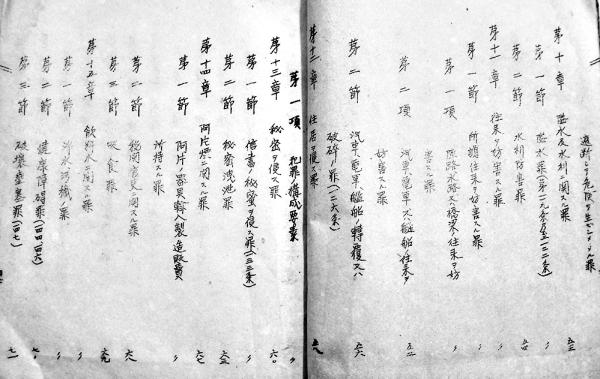 道路ニ又危険ヲ生ゼシメタル罪
第十章 溢水及水利ニ関スル罪 五三
第一節 溢水罪(第一一九条乃至一二二条) 〃
第二節 水利妨害罪 五四
第十一章 往来ヲ妨害スル罪 〃
第一節 所謂往来ヲ妨害スル罪 〃
第一項 陸路水路又ハ橋梁ノ往来ヲ妨
害スル罪 〃
第二項 汽車電車又ハ艦船ノ往来ヲ
妨害スル罪 五五
第二節 汽車電車艦船ノ転覆又ハ
破砕ノ罪(一二六条) 五六
第十二章 住居ヲ侵ス罪 五八
第一項 犯罪構成要素 〃
第十三章 秘密ヲ侵ス罪 六〇
第一節 信書ノ秘密ヲ侵ス罪(一三三条) 〃
第二節 秘密洩泄罪
第十四章 阿片烟ニ関スル罪 六七
第一節 阿片ノ器具輸入製造販賣
所持スル罪 〃
第二節 税関官吏ニ関スル罪 六八
第三節 吸食罪 六九
第十五章 飲料水ニ関スル罪 〃
第一節 浄水汚穢ノ罪 〃
第二節 健康障碍罪 七〇
第三節 破壊壅塞罪(一四七) 七一